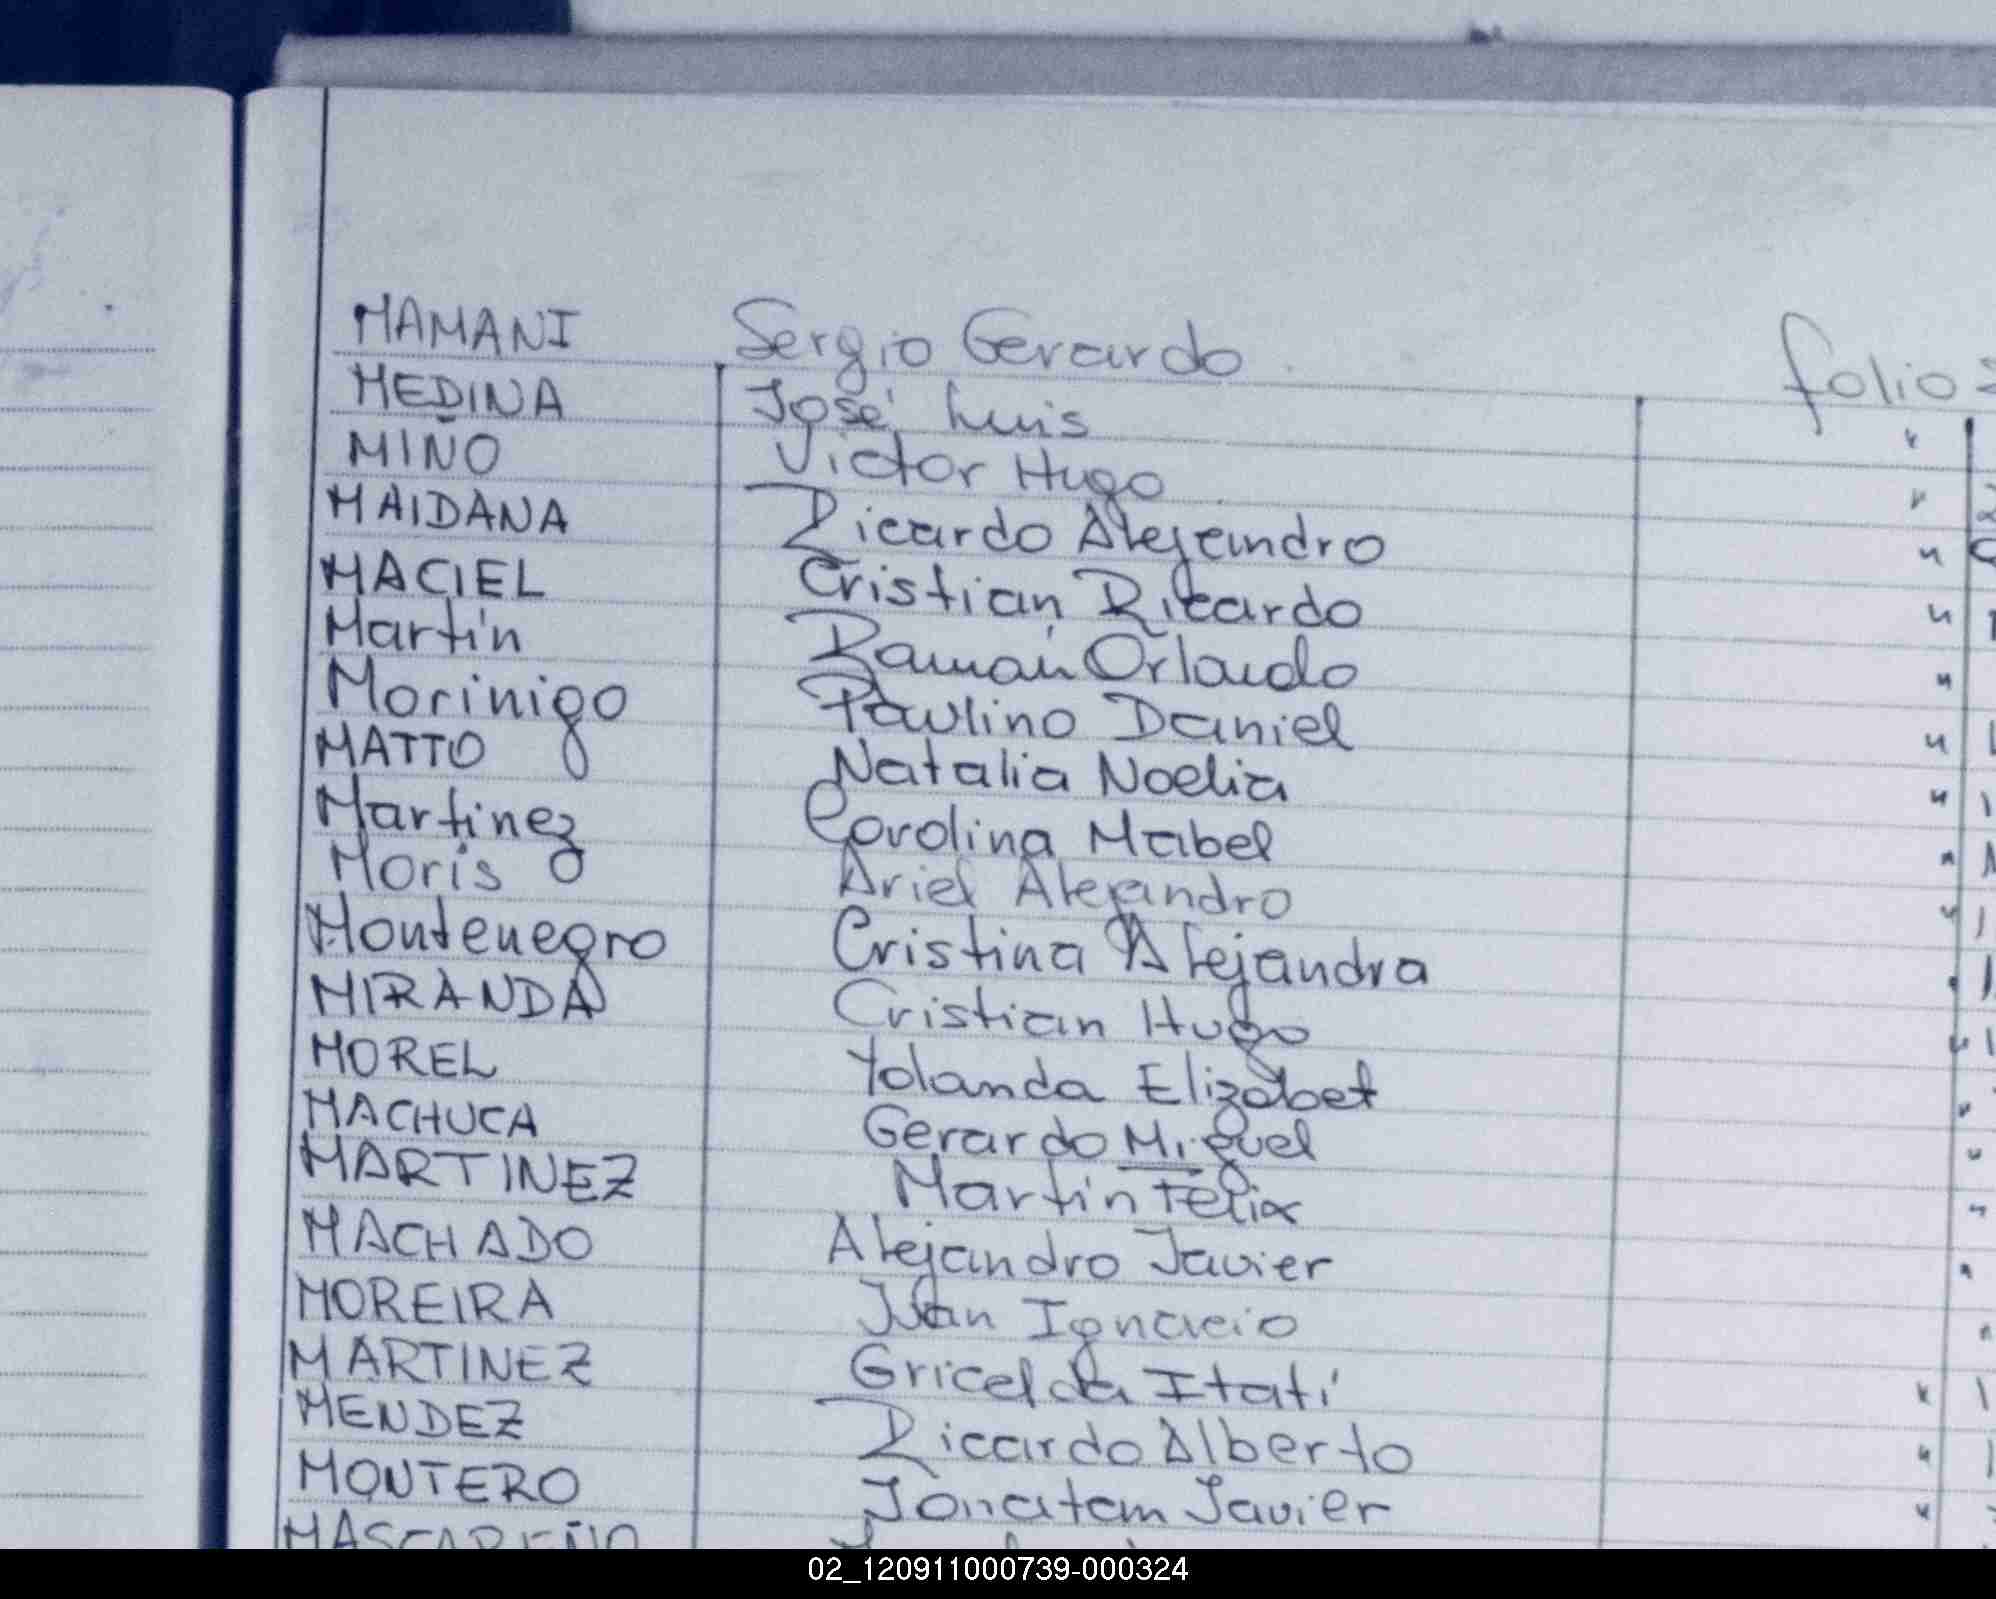 MAMANI Sergio Gerardo folio
MEDINA José Luis "
MIÑO Victor Hugo "
MAIDANA Ricardo Alejandro "
MACIEL Cristian Ricardo "
Martín Ramón Orlando "
Morinigo Paulino Daniel "
MATTO Natalia Noelia "
Martinez Carolina Mabel "
Moris Ariel Alejandro "
Montenegro Cristina Alejandra "
MIRANDA Cristian Hugo "
MOREL Yolanda Elizabet "
MACHUCA Gerardo Miguel "
MARTINEZ Martín Félix "
MACHADO Alejandro Javier "
MOREIRA Ignacio "
MARTINEZ Gricelda Itatí "
MENDEZ Ricardo Alberto "
MONTERO Jonatam Javier "
MASCAREÑO
02_120911000739-000324